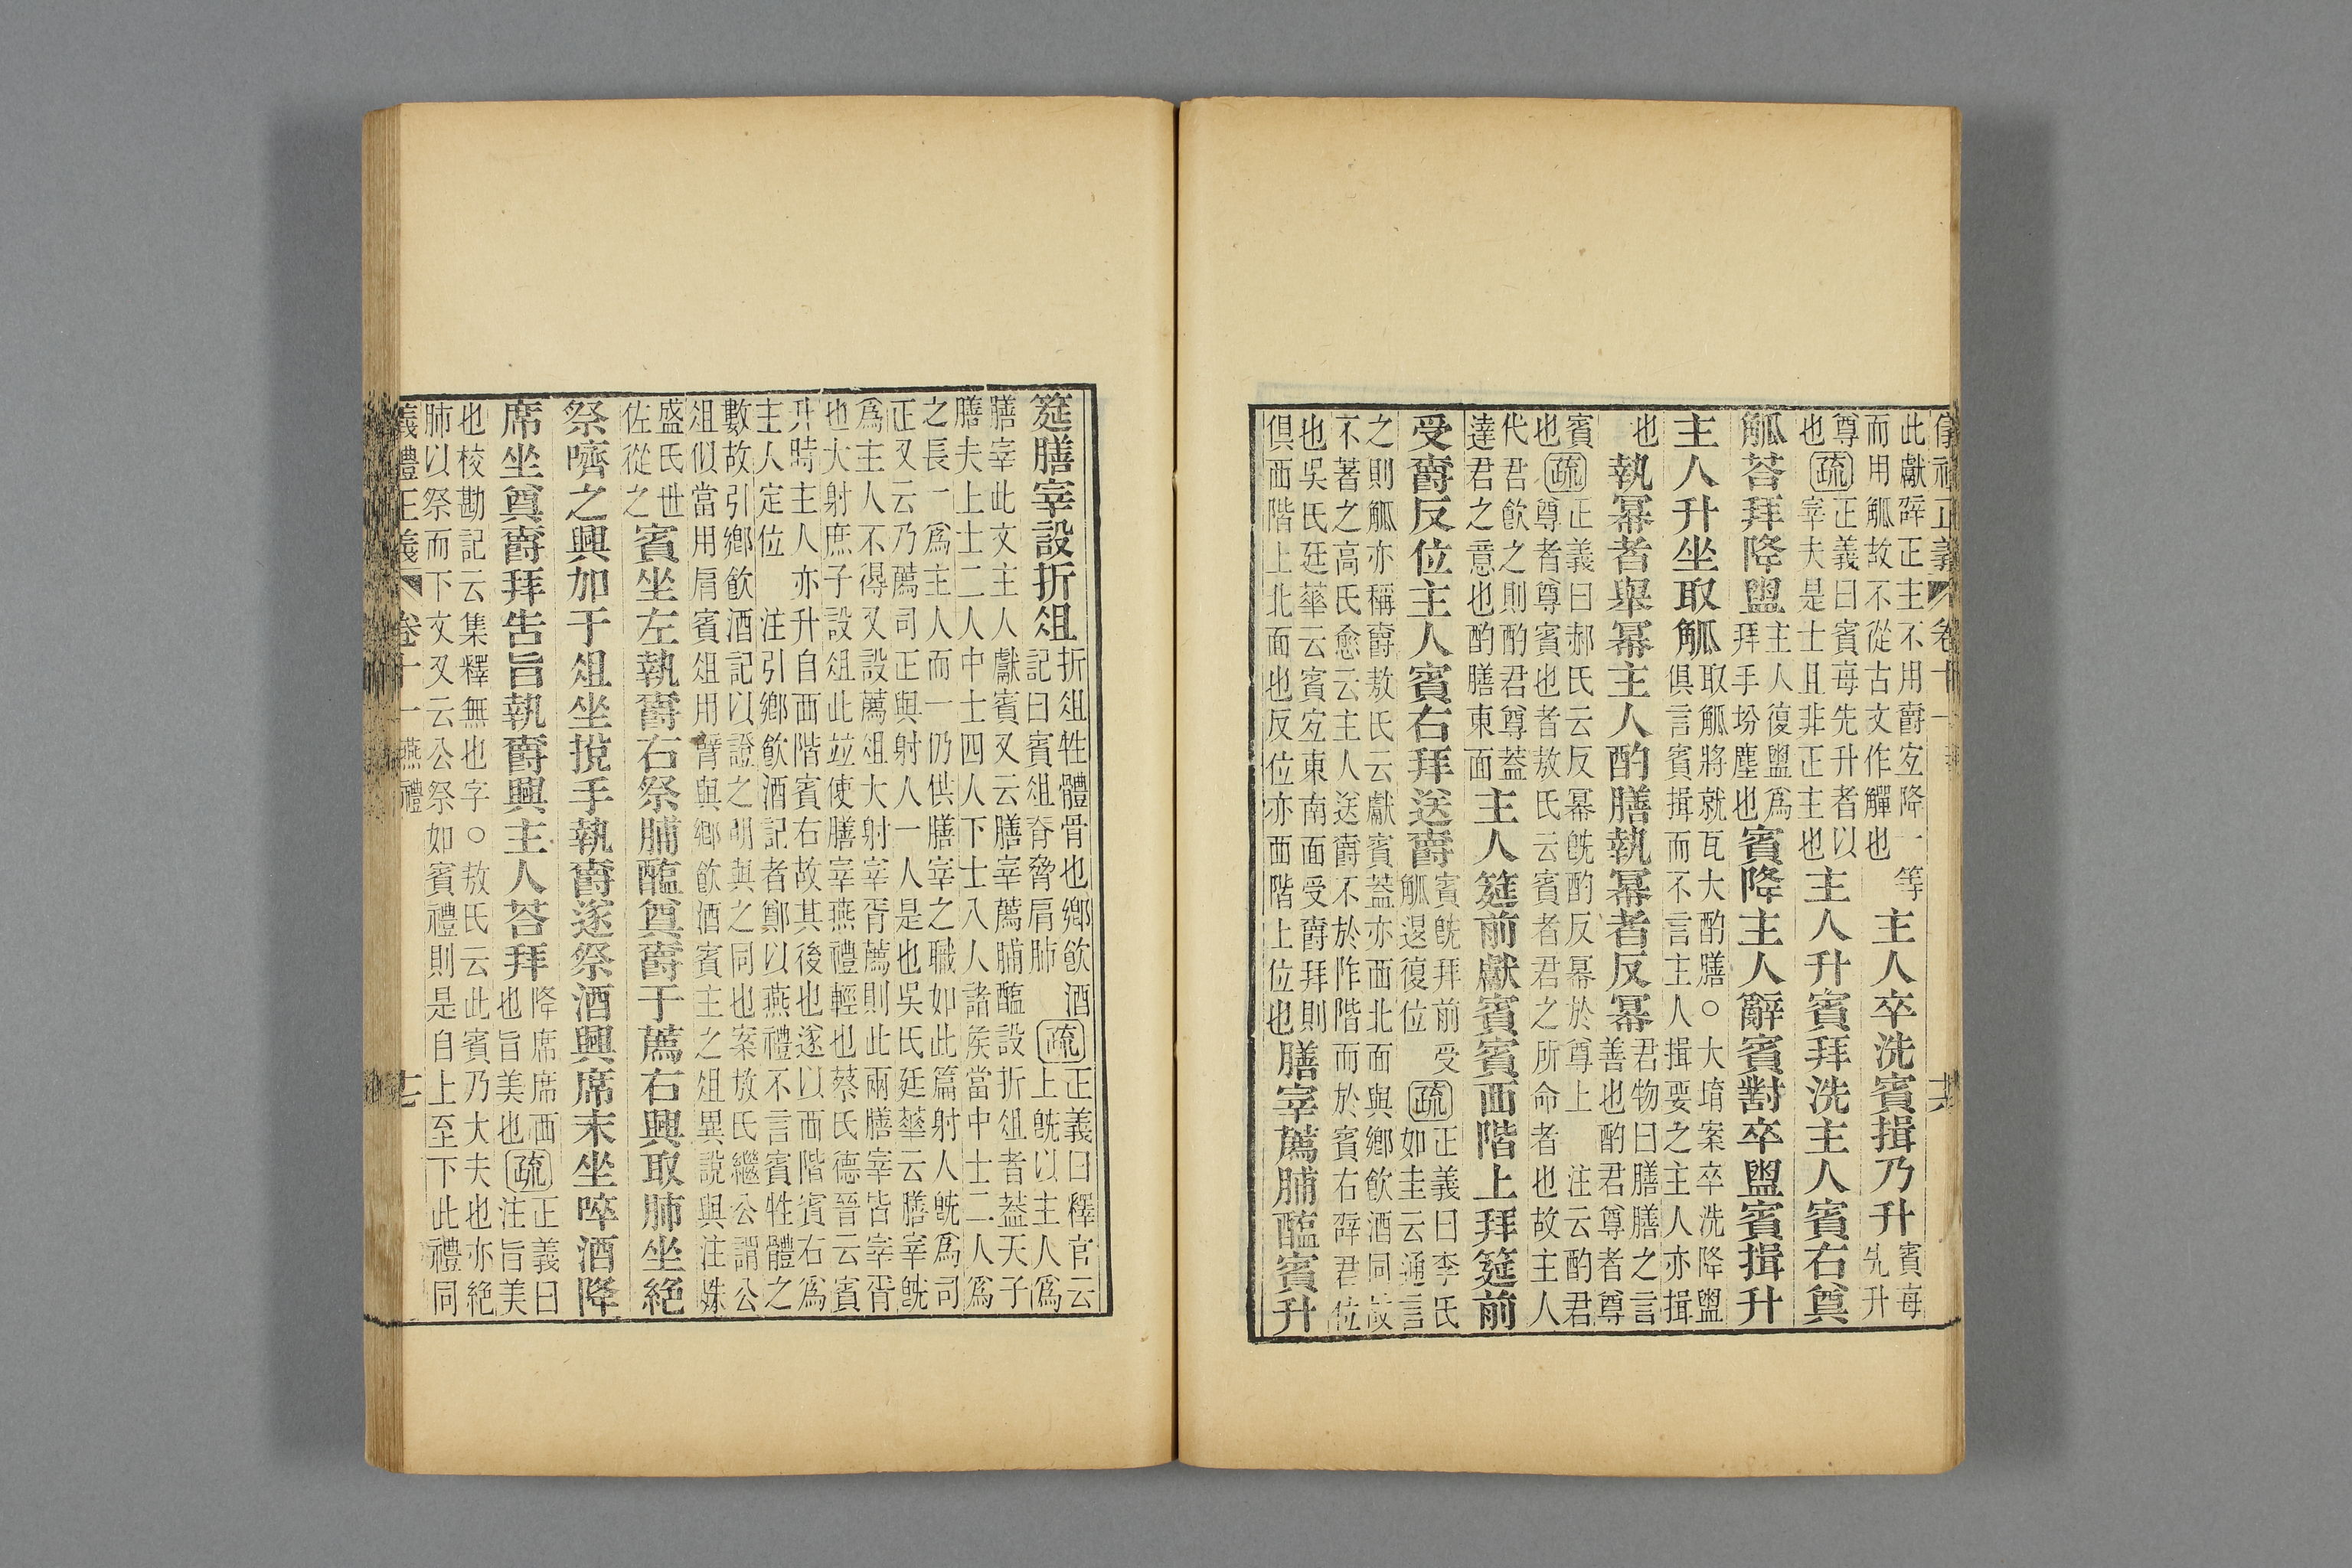 儀禮正義 卷十一 燕禮 十六
此獻辟正主不用爵宐降一等
而用觚故不從古文作觶也
主人卒洗賓揖乃升
賓每
先升
尊
也
疏
正義曰賓每先升者以
宰夫是士且非正主也
主人升賓拜洗主人賓右奠
觚荅拜降盥
主人復盥爲
拜手坋塵也
賓降主人辭賓對卒盥賓揖升
主人升坐取觚
取觚將就瓦大酌膳○大堉案卒洗降盥
俱言賓揖而不言主人揖要之主人亦揖
也
執冪者舉冪主人酌膳執冪者反冪
君物曰膳膳之言
善也酌君尊者尊
賓
也
疏
正義曰郝氏云反冪旣酌反冪於尊上 注云酌君
尊者尊賓也者敖氏云賓者君之所命者也故主人
代君飮之則酌君尊蓋
達君之意也酌膳東面
主人筵前獻賓賓西階上拜筵前
受爵反位主人賓右拜送爵
賓旣拜前受
觚退復位
疏
正義曰李氏
如圭云通言
之則觚亦稱爵敖氏云獻賓蓋亦西北面與鄕飮酒同故
不著之高氏愈云主人送爵不於阼階而於賓右辟君位
也吳氏廷華云賓宐東南面受爵拜則
俱西階上北面也反位亦西階上位也
膳宰薦脯醢賓升
筵膳宰設折俎
折俎牲體骨也鄕飮酒
記曰賓俎脊脅肩肺
疏
正義曰釋官云
上旣以主人爲
膳宰此文主人獻賓又云膳宰薦脯醢設折俎者蓋天子
膳夫上士二人中士四人下士八人諸矦當中士二人爲
之長一爲主人而一仍供膳宰之職如此篇射人旣爲司
正又云乃薦司正與射人一人是也吳氏廷華云膳宰旣
爲主人不得又設薦俎大射宰胥薦則此兩膳宰皆宰胥
也大射庶子設俎此竝使膳宰燕禮輕也蔡氏德晉云賓
升時主人亦升自西階賓右故其後也遂以西階賓右爲
主人定位 注引鄕飮酒記者鄭以燕禮不言賓牲體之
數故引鄕飮酒記以證之明與之同也案敖氏繼公謂公
俎似當用肩賓俎用臂與鄕飮酒賓主之俎異說與注殊
盛氏世
佐從之
賓坐左執爵右祭脯醢奠爵于薦右興取肺坐絕
祭嚌之興加于俎坐挩手執爵遂祭酒興席末坐啐酒降
席坐奠爵拜告旨執爵興主人荅拜
降席席西
也旨美也
疏
正義曰
注旨美
也校勘記云集釋無也字○敖氏云此賓乃大夫也亦絕
肺以祭而下文又云公祭如賓禮則是自上至下此禮同
義禮正義 卷十一 燕禮 十七